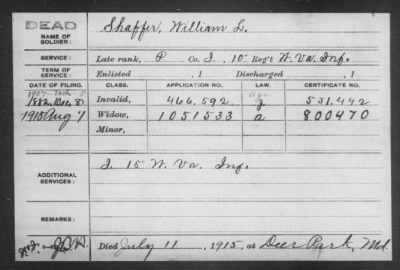 DEAD
NAME OF SOLDIER:
Shaffer, William L.
SERVICE:
Late rank, P Co. I, 15 Reg't W. Va. Inf.
TERM OF SERVICE:
Enlisted , 1 Discharged , 1
DATE OF FILING. CLASS. APPLICATION NO. LAW. CERTIFICATE NO.
1882 Dec. 8 Invalid, 466,592 531,442
1915 Aug 7 Widow, 1051533 a 800470
Minor,
ADDITIONAL SERVICES:
I. 15 W. Va. Inf.
REMARKS:
Died July 11, 1915, at Deer Park, Md